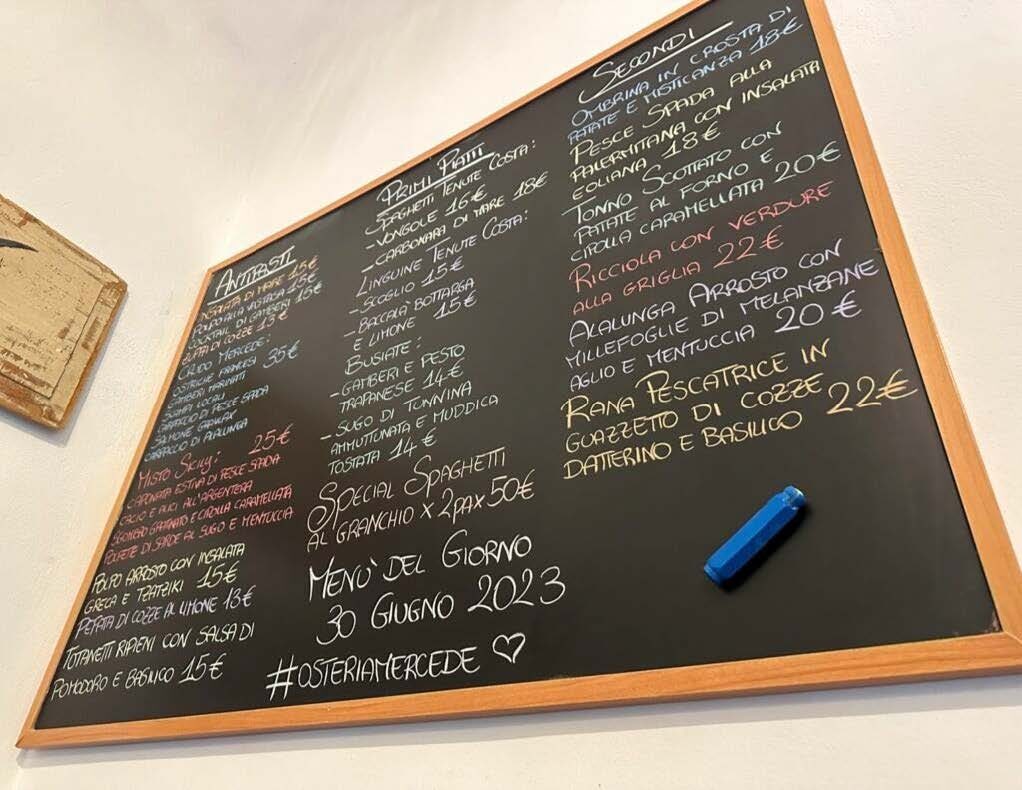 ANTIPASTI
INSALATA DI MARE 15€
POLPO ALLA VASTASA 15€
COCKTAIL DI GAMBERI 15€
ZUPPA DI COZZE 13€
CRUDO MERCEDE:
OSTRICHE FRANCESI 35€
GAMBERI MARINATI
SCAMPI LOCALI
CARPACCIO DI PESCE SPADA
SALMONE GRAVLAX
CARPACCIO DI ALALUNGA
MISTO SICILY: 25€
CAPONATA ESTIVA DI PESCE SPADA
CACIO E ALICI ALL'ARGENTERA
SGOMBRO GRATINATO E CIPOLLA CARAMELLATA
POLPETE DI SARDE AL SUGO E MENTUCCIA
POLPO ARROSTO CON INSALATA
GRECA E TZATZIKI 15€
PEPATA DI COZZE AL LIMONE 13€
TOTANETTI RIPIENI CON SALSA DI
POMODORO E BASILICO 15€
PRIMI PIATTI
SPAGHETTI TENUTE COSTA:
- VONGOLE 16€
- CARBONARA DI MARE 18€
LINGUINE TENUTE COSTA:
- SCOGLIO 15€
- BACCALÀ BOTTARGA
E LIMONE 15€
BUSIATE:
- GAMBERI E PESTO
TRAPANESE 14€
- SUGO DI TONNINA
AMMUTTUNATA E MUDDICA
TOSTATA 14€
SPECIAL SPAGHETTI
AL GRANCHIO x 2pax 50€
MENU' DEL GIORNO
30 GIUGNO 2023
#OSTERIAMERCEDE ♡
SECONDI
OMBRINA IN CROSTA DI
PATATE E MISTICANZA 18€
PESCE SPADA ALLA
PALERMITANA CON INSALATA
EOLIANA 18€
TONNO SCOTTATO CON
PATATE AL FORNO E
CIPOLLA CARAMELLATA 20€
RICCIOLA CON VERDURE
ALLA GRIGLIA 22€
ALALUNGA ARROSTO CON
MILLEFOGLIE DI MELANZANE
AGLIO E MENTUCCIA 20€
RANA PESCATRICE IN
GUAZZETTO DI COZZE
DATTERINO E BASILICO 22€